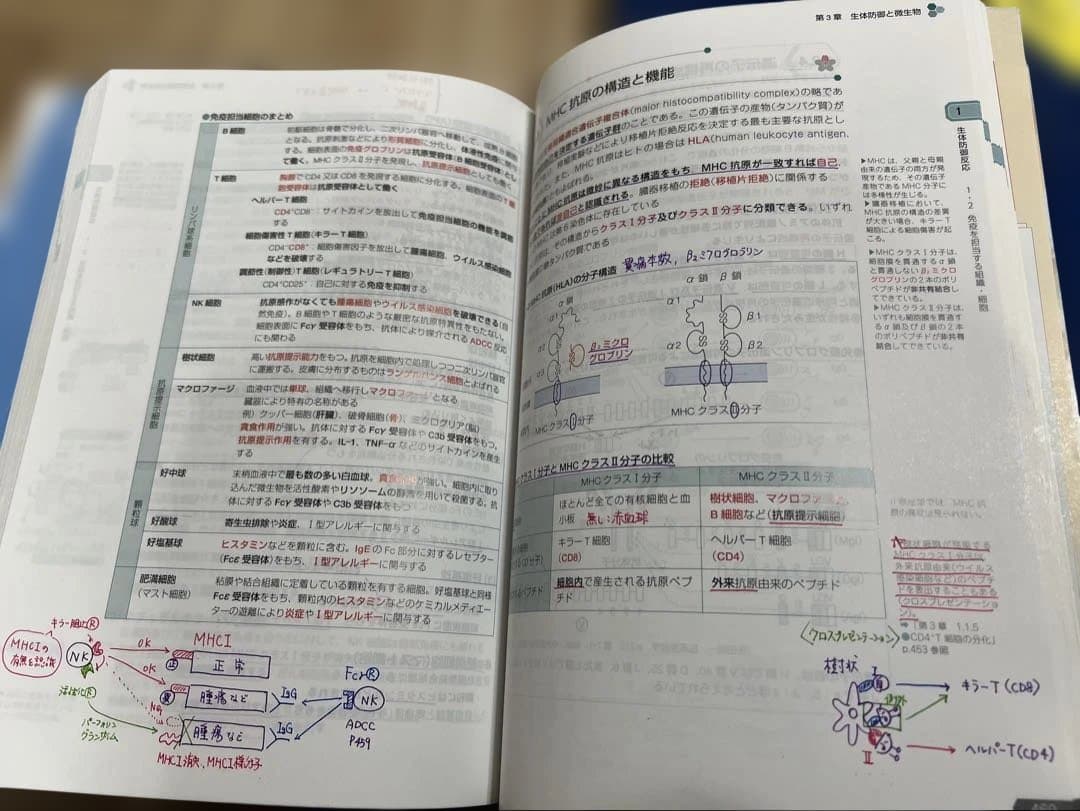 ●免疫担当細胞のまとめ
リンパ球系細胞
B 細胞
前駆細胞は骨髄で分化し、二次リンパ器官へ移動して、成熟B細胞
となる。抗原刺激などにより形質細胞に分化し、体液性免疫
する。細胞表面の免疫グロブリンは抗原受容体(B細胞受容体)とし
て働く。MHC クラスⅡ分子を発現し、抗原提示細胞としても働く
T 細胞
胸腺でCD4又はCD8を発現する細胞に分化する。細胞表面のT細
胞受容体は抗原受容体として働く
ヘルパーT 細胞
CD4⁺CD8⁻:サイトカインを放出して免疫担当細胞の機能を調節
する
細胞傷害性T細胞(キラーT 細胞)
CD4⁻CD8⁺:細胞傷害因子を放出して腫瘍細胞、ウイルス感染細胞
などを破壊する
調節性(制御性)T細胞(レギュラトリーT 細胞)
CD4⁺CD25⁺:自己に対する免疫を抑制する
NK 細胞
抗原感作がなくても腫瘍細胞やウイルス感染細胞を破壊できる(自
然免疫)。B細胞やT細胞のような厳密な抗原特異性をもたない。
細胞表面にFcγ 受容体をもち、抗体により媒介されるADCC 反応
にも関わる
抗原提示細胞
樹状細胞
高い抗原提示能力をもつ。抗原を細胞内で処理しつつ二次リンパ器官
に運搬する。皮膚に分布するものはランゲルハンス細胞とよばれる
マクロファージ
血液中では単球、組織へ移行しマクロファージとなる
臓器により特有の名称がある
例)クッパー細胞(肝臓)、破骨細胞(骨)、ミクログリア(脳)
貪食作用が強い。抗体に対するFcγ 受容体やC3b受容体をもつ。
抗原提示作用を有する。IL-1、TNF-α などのサイトカインを産生
する
顆粒球
好中球
末梢血液中で最も数の多い白血球。貪食作用が強い。細胞内に取り
込んだ微生物を活性酸素やリソソームの酵素を用いて殺菌する。抗
体に対するFcγ 受容体やC3b 受容体をもつ
好酸球
寄生虫排除や炎症、Ⅰ型アレルギーに関与する
好塩基球
ヒスタミンなどを顆粒に含む。IgEのFc 部分に対するレセプター
(Fcε 受容体)をもち、Ⅰ型アレルギーに関与する
肥満細胞
(マスト細胞)
粘膜や結合組織に定着している顆粒を有する細胞。好塩基球と同様
Fcε 受容体をもち、顆粒内のヒスタミンなどのケミカルメディエー
ターの遊離により炎症やⅠ型アレルギーに関与する
キラー抑止Ⓡ
MHCⅠの
有無を認識
NK
活性化Ⓡ
パーフォリン
グランザイム
OK
OK
NG
MHCⅠ
正常
腫瘍など
腫瘍など
IgG
IgG
FcγⓇ
NK
ADCC
P459
MHCⅠ消失、MHCⅠ様分子
第3章 生体防御と微生物
MHC 抗原の構造と機能
主要組織適合性遺伝子複合体(major histocompatibility complex)の略であ
を決定する遺伝子群のことである。この遺伝子の産物(タンパク質)が
植実験などにより移植片拒絶反応を決定する最も主要な抗原とし
また、MHC 抗原はヒトの場合はHLA(human leukocyte antigen,
ばれる。
MHC抗原は微妙に異なる構造をもち、MHC 抗原が一致すれば自己、
非自己と認識される。臓器移植の拒絶(移植片拒絶)に関係する
第6染色体に存在している
その構造からクラスⅠ分子及びクラスⅡ分子に分類できる。いずれ
タンパク質である
抗原(HLA)の分子構造
貫通本数, β2ミクログロブリン
α 鎖
α 鎖 β 鎖
α1 β1
α2
α2 β2
α3
β₂ミクロ
グロブリン
MHC クラスⅠ分子
MHC クラスⅡ分子
クラスⅠ分子とMHC クラスⅡ分子の比較
MHC クラスⅠ分子
MHC クラスⅡ分子
ほとんど全ての有核細胞と血
小板 無い:赤血球
樹状細胞、マクロファージ、
B 細胞など(抗原提示細胞)
キラーT 細胞
(CD8)
ヘルパーT 細胞
(CD4)
細胞内で産生される抗原ペプ
チド
外来抗原由来のペプチド
1
生体防御反応
1・2 免疫を担当する組織・細胞
▶MHCは、父親と母親
由来の遺伝子の両方が発
現するため、その遺伝子
産物であるMHC分子に
は多様性が生じる。
▶臓器移植において、
MHC 抗原の構造の差異
が大きい場合、キラーT
細胞による細胞傷害が起
こる。
▶MHCクラスⅠ分子は、
細胞膜を貫通するα鎖
と貫通しないβ₂ミクロ
グロブリンの2本のポリ
ペプチドが非共有結合し
てできている。
▶MHCクラスⅡ分子は、
いずれも細胞膜を貫通す
るα鎖及びβ鎖の2本
のポリペプチドが非共有
結合してできている。
樹状細胞が発現する
MHCクラスⅠ分子は、
外来抗原由来(ウイルス
感染細胞など)のペプチ
ドを提示することもある
(クロスプレゼンテーショ
ン)。
➡「第3章 1.1.5
●CD4⁺T 細胞の分化」
p.453 参照
〈クロスプレゼンテーション〉
樹状
Ⅰ
Ⅱ
キラーT(CD8)
ヘルパーT(CD4)